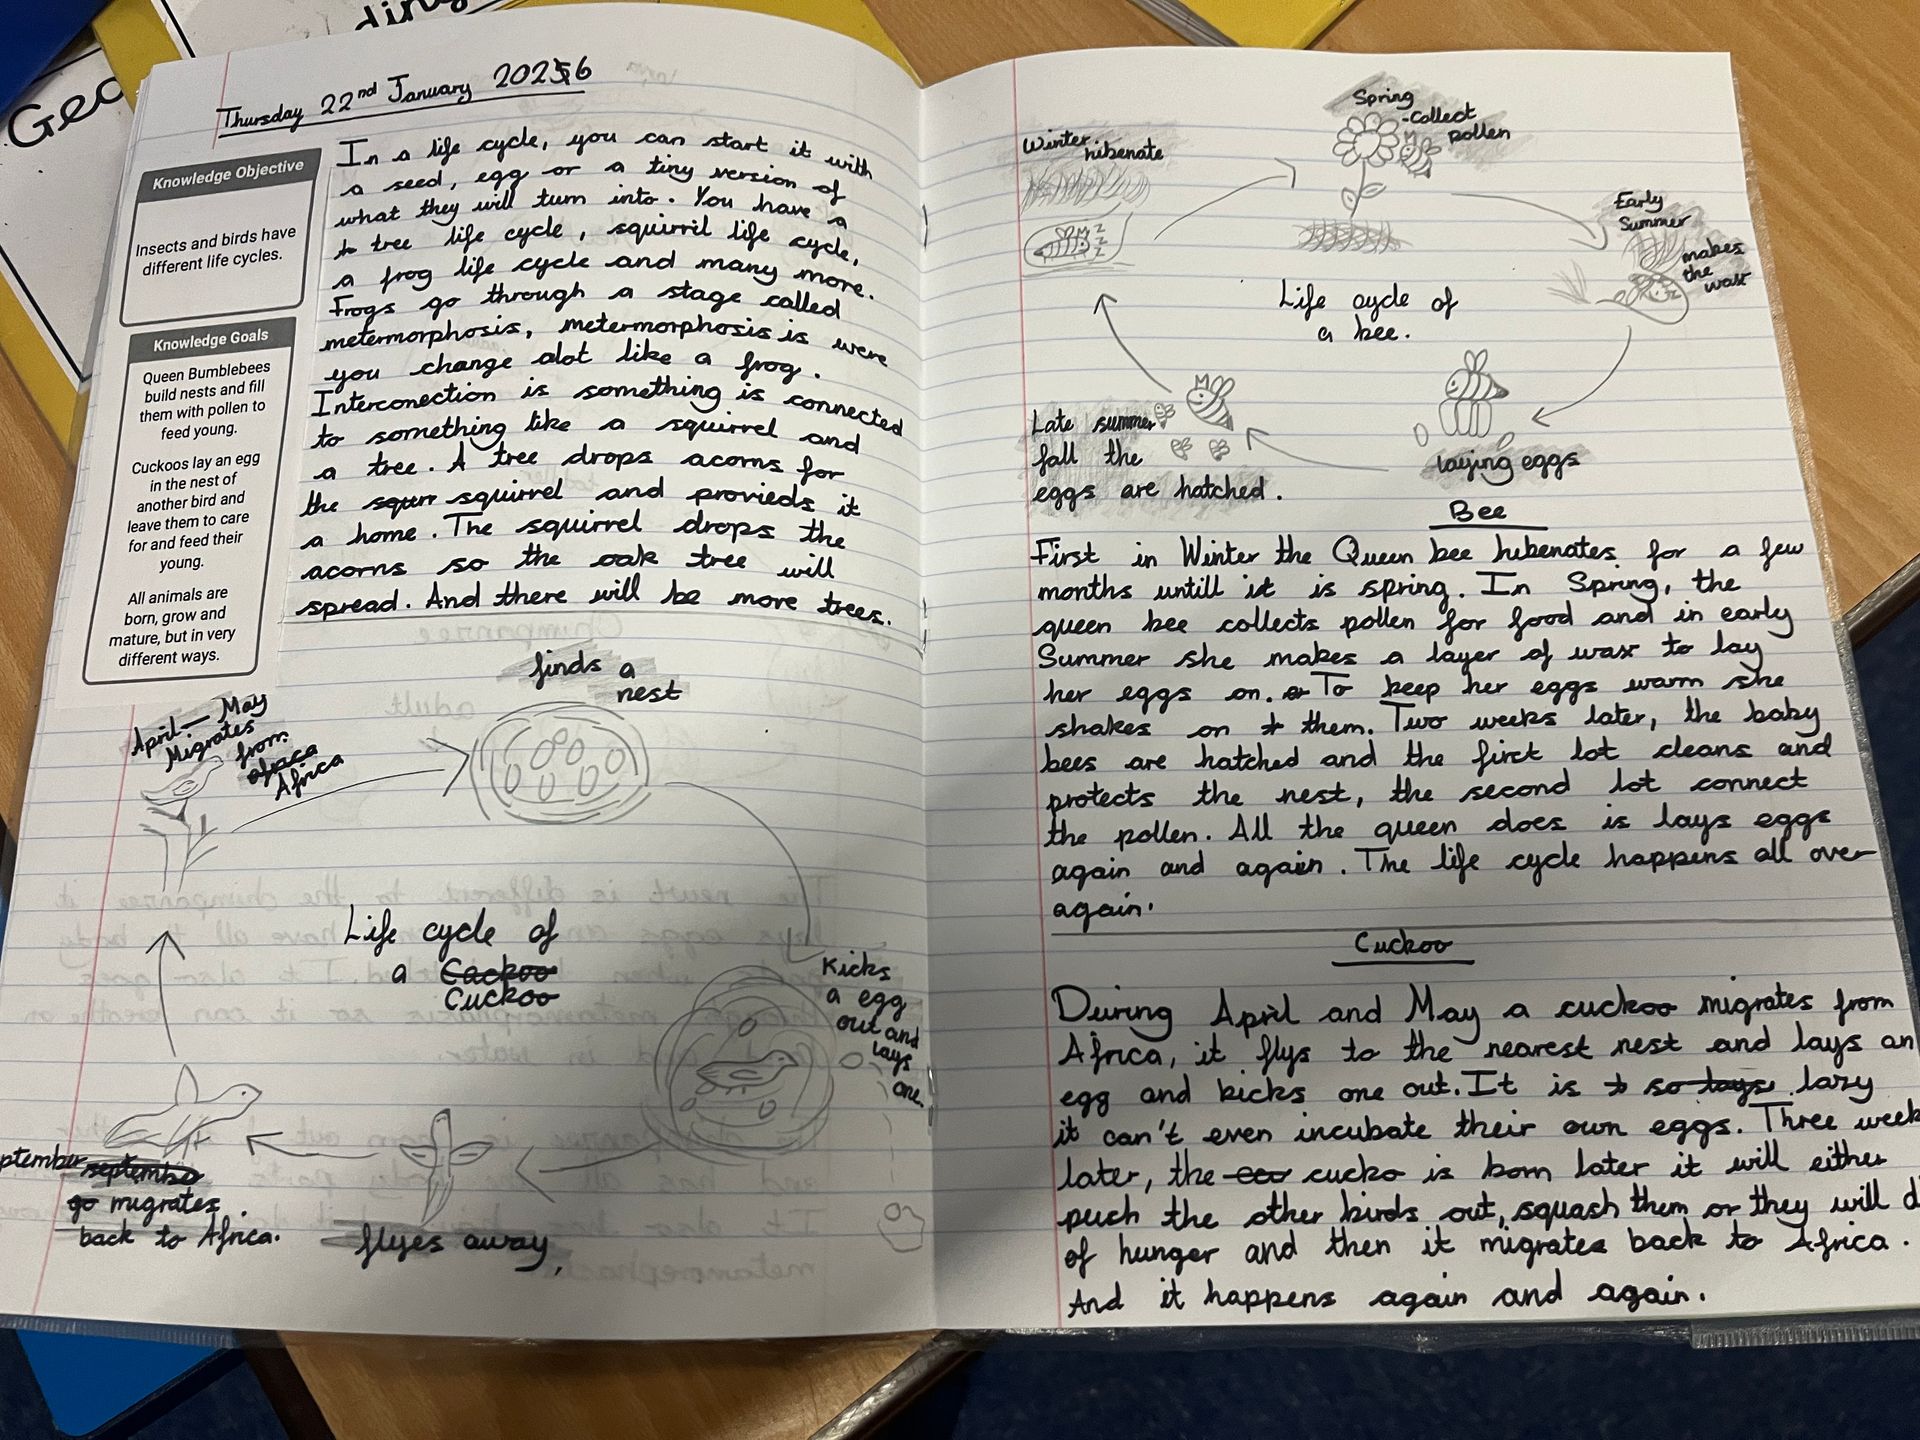 Geo
ding
Thursday 22nd January 2026
Knowledge Objective
Insects and birds have
different life cycles.
Knowledge Goals
Queen Bumblebees
build nests and fill
them with pollen to
feed young.
Cuckoos lay an egg
in the nest of
another bird and
leave them to care
for and feed their
young.
All animals are
born, grow and
mature, but in very
different ways.
In a life cycle, you can start it with
a seed, egg or a tiny version of
what they will turn into. You have a
tree life cycle, squirril life cycle,
a frog life cycle and many more.
Frogs go through a stage called
metermorphosis, metermorphosis is were
you change alot like a frog.
Interconection is something is connected
to something like a squirrel and
a tree. A tree drops acorns for
the squrr squirrel and provieds it
a home. The squirrel drops the
acorns so the oak tree will
spread. And there will be more trees.
finds a
nest
April - May
Migrates
from
africa
Africa
Life cycle of
a Cackoo
Cuckoo
Kicks
a egg
out and
lays
one.
ptember septembe
go migrates
back to Africa.
flyes away,
Winter
hibenate
Spring
-collect
pollen
Early
Summer
makes
the
wax
Life cycle of
a bee.
Late summer
fall the
eggs are hatched.
laying eggs
Bee
First in Winter the Queen bee hibenates for a few
months untill it is spring. In Spring, the
queen bee collects pollen for food and in early
Summer she makes a layer of wax to lay
her eggs on. To keep her eggs warm she
shakes on them. Two weeks later, the baby
bees are hatched and the first lot cleans and
protects the nest, the second lot connect
the pollen. All the queen does is lays eggs
again and again. The life cycle happens all over
again.
Cuckoo
During April and May a cuckoo migrates from
Africa, it flys to the nearest nest and lays an
egg and kicks one out. It is so lays lazy
it can't even incubate their own eggs. Three week
later, the cuo cucko is born later it will either
puch the other birds out, squash them or they will d
of hunger and then it migrates back to Africa.
And it happens again and again.